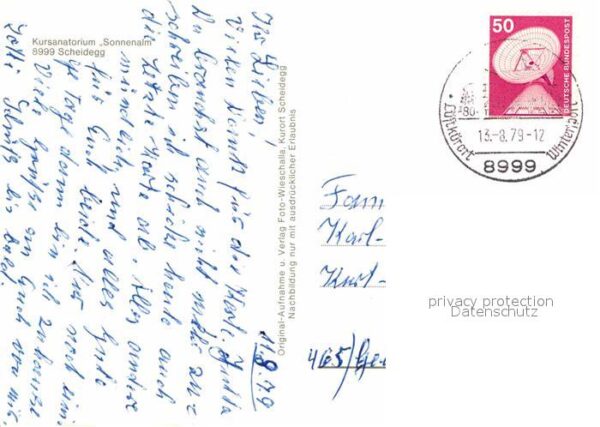 Kursanatorium „Sonnenalm"
8999 Scheidegg
11.8.79
Ihr Lieben!
Vielen Dank für die Karte, Jutta
Du brauchst auch nicht mehr zu
schreiben ich schicke heute auch
die letzte Karte ab. Alles andere
mündlich und alles Gute
für Euch beide. Nur noch ein
Tage dann bin ich zuhause
Viele Grüße an Euch von mir.
bis bald.
Original-Aufnahme u. Verlag Foto-Wieschalla, Kurort Scheidegg
Nachbildung nur mit ausdrücklicher Erlaubnis
50
DEUTSCHE BUNDESPOST
13.-8.79-12
Luftkurort Wintersport
8999
Fam
Karl-
Kurt-
465)
privacy protection
Datenschutz